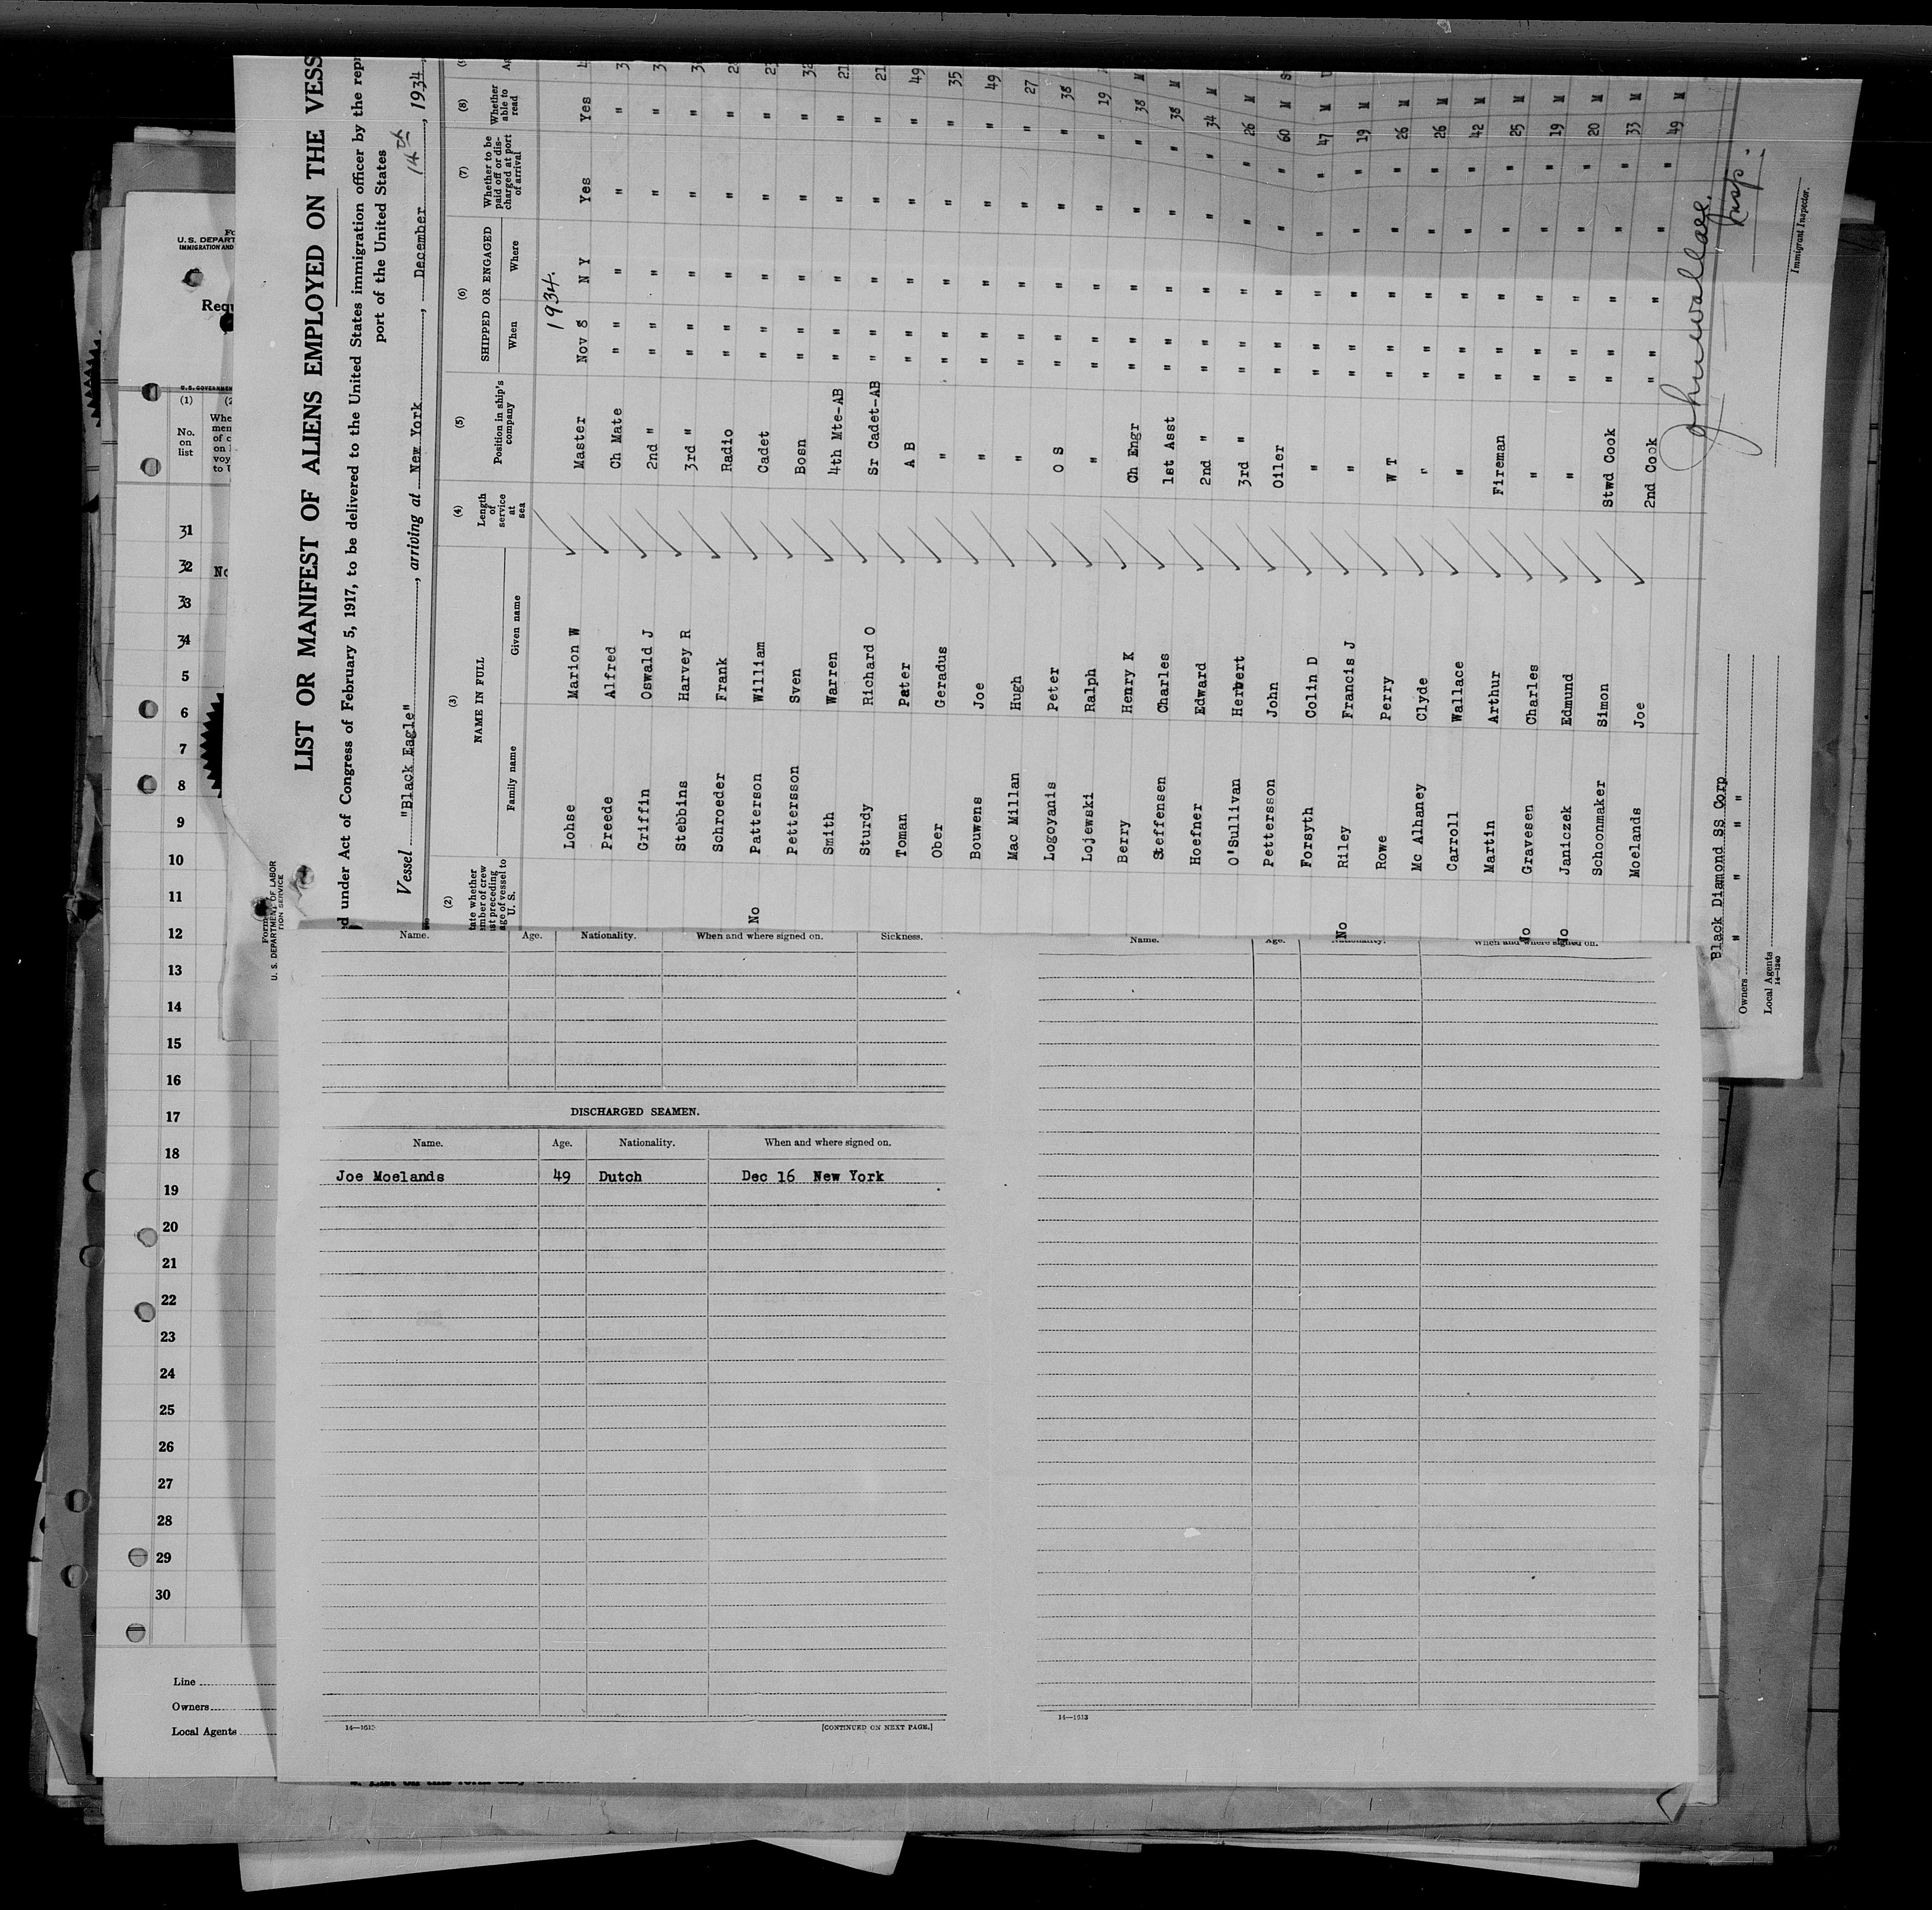 LIST OR MANIFEST OF ALIENS EMPLOYED ON THE VESS
d under Act of Congress of February 5, 1917, to be delivered to the United States immigration officer by the repr
port of the United States
Vessel "Black Eagle", arriving at New York, December 14th, 1934
(2) (3) (4) (5) (6) (7) (8)
NAME IN FULL
Family name Given name
Length of service at sea
Position in ship's company
SHIPPED OR ENGAGED
When Where
Whether to be paid off or discharged at port of arrival
Whether able to read
1934.
Lohse Marion W Master Nov 8 N Y Yes Yes
Preede Alfred Ch Mate " " " " "
Griffin Oswald J 2nd " " " " " "
Stebbins Harvey R 3rd " " " " " "
Schroeder Frank Radio " " " " "
No Patterson William Cadet " " " " "
Pettersson Sven Bosn " " " " " 32
Smith Warren 4th Mte-AB " " " " " 21
Sturdy Richard O Sr Cadet-AB " " " " " 21
Toman Peter A B " " " " " 49
Ober Geradus " " " " " " 35
Bouwens Joe " " " " " " 49
Mac Millan Hugh " " " " " " 27
Logoyanis Peter O S " " " " " 38
Lojewski Ralph " " " " " " 19
Berry Henry K Ch Engr " " " " " 38 M
Steffensen Charles 1st Asst " " " " " 38 M
Hoefner Edward 2nd " " " " " " 34 M
O'Sullivan Herbert 3rd " " " " " " 26 M
Pettersson John Oiler " " " " " 60 M
Forsyth Colin D " " " " " " 47 M
No Riley Francis J " " " " " " 19 M
Rowe Perry W T " " " " " 26 M
Mc Alhaney Clyde " " " " " " 26 M
Carroll Wallace " " " " " " 42 M
Martin Arthur Fireman " " " " " 25 M
No Gravesen Charles " " " " " " 19 M
No Janiczek Edmund " " " " " " 20 M
Schoonmaker Simon Stwd Cook " " " " " 33 M
Moelands Joe 2nd Cook " " " " " 49 M
John Wallace.
Insp.
Immigrant Inspector.
Black Diamond SS Corp
Owners " " " "
Local Agents
14-1240
U. S. DEPARTMENT OF LABOR
U.S. DEPART
IMMIGRATION AND
Requ
U.S. GOVERNMEN
(1) (2
No. on list
Whe
men
of c
on
voy
to U
31
32 No
33
34
5
6
7
8
9
10
11
12
13
14
15
16
17
18
19
20
21
22
23
24
25
26
27
28
29
30
Line
Owners
Local Agents
Name. Age. Nationality. When and where signed on. Sickness.
DISCHARGED SEAMEN.
Name. Age. Nationality. When and where signed on.
Joe Moelands 49 Dutch Dec 16 New York
[CONTINUED ON NEXT PAGE.]
Name. Age. Nationality. When and where signed on.
14—1613